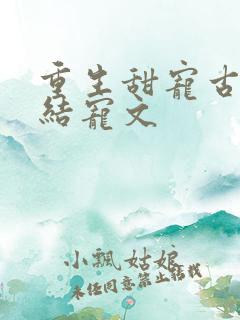 重生甜寵古
結寵文
小飄姑娘
未任同意禁止轉載